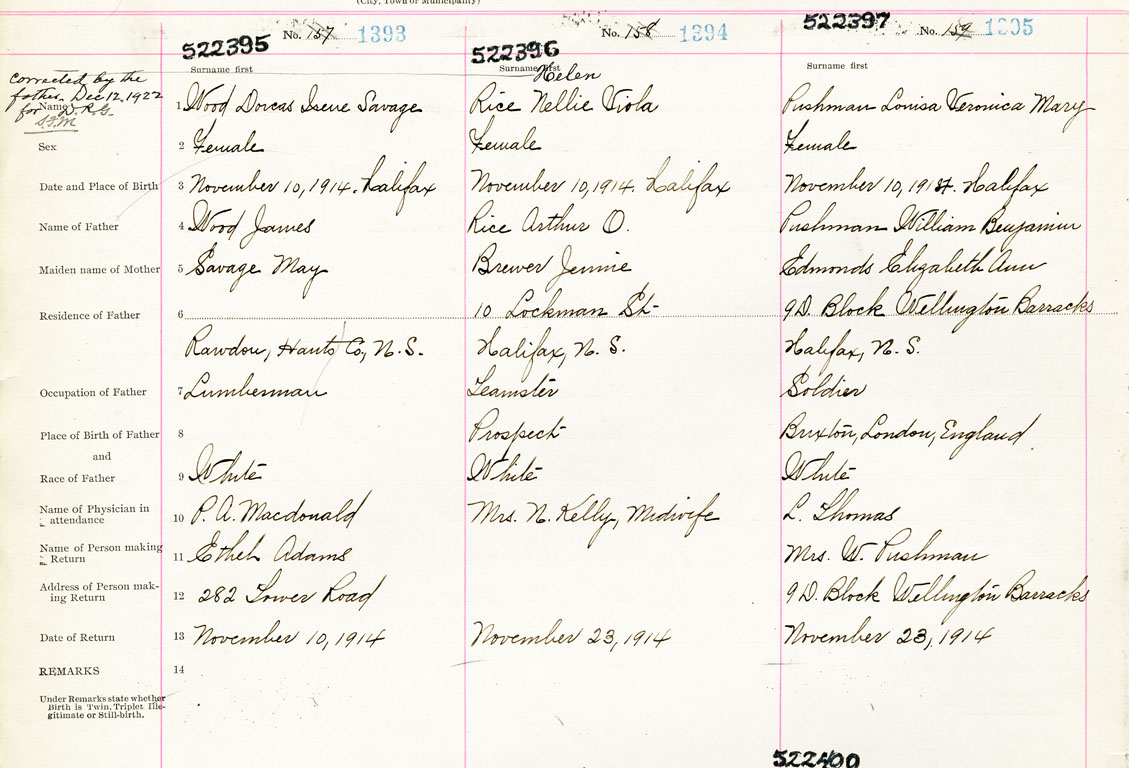 (City, Town or Municipality)
522395 No. 157 1393 522396 No. 158 1394 522397 No. 159 1395
Surname first Surname first Surname first
Corrected by the
father. Dec 12, 1922
for D.R.G.
S.T.M
Helen
Name 1 Wood Dorcas Irene Savage Rice Nellie Viola Pushman Louisa Veronica Mary
Sex 2 Female Female Female
Date and Place of Birth 3 November 10, 1914. Halifax November 10, 1914. Halifax November 10, 1914. Halifax
Name of Father 4 Wood James Rice Arthur O. Pushman William Benjamin
Maiden name of Mother 5 Savage May Brewer Jennie Edmonds Elizabeth Ann
Residence of Father 6 10 Lockman St 9 D. Block Wellington Barracks
Rawdon, Hants Co, N.S. Halifax, N.S. Halifax, N.S.
Occupation of Father 7 Lumberman Teamster Soldier
Place of Birth of Father 8 Prospect Brixton, London, England
and
Race of Father 9 White White White
Name of Physician in
attendance 10 P. A. Macdonald Mrs. N. Kelly, Midwife L. Thomas
Name of Person making
Return 11 Ethel Adams Mrs. W. Pushman
Address of Person mak-
ing Return 12 282 Lower Road 9 D. Block Wellington Barracks
Date of Return 13 November 10, 1914 November 23, 1914 November 23, 1914
REMARKS 14
Under Remarks state whether
Birth is Twin, Triplet Ille-
gitimate or Still-birth.
522400